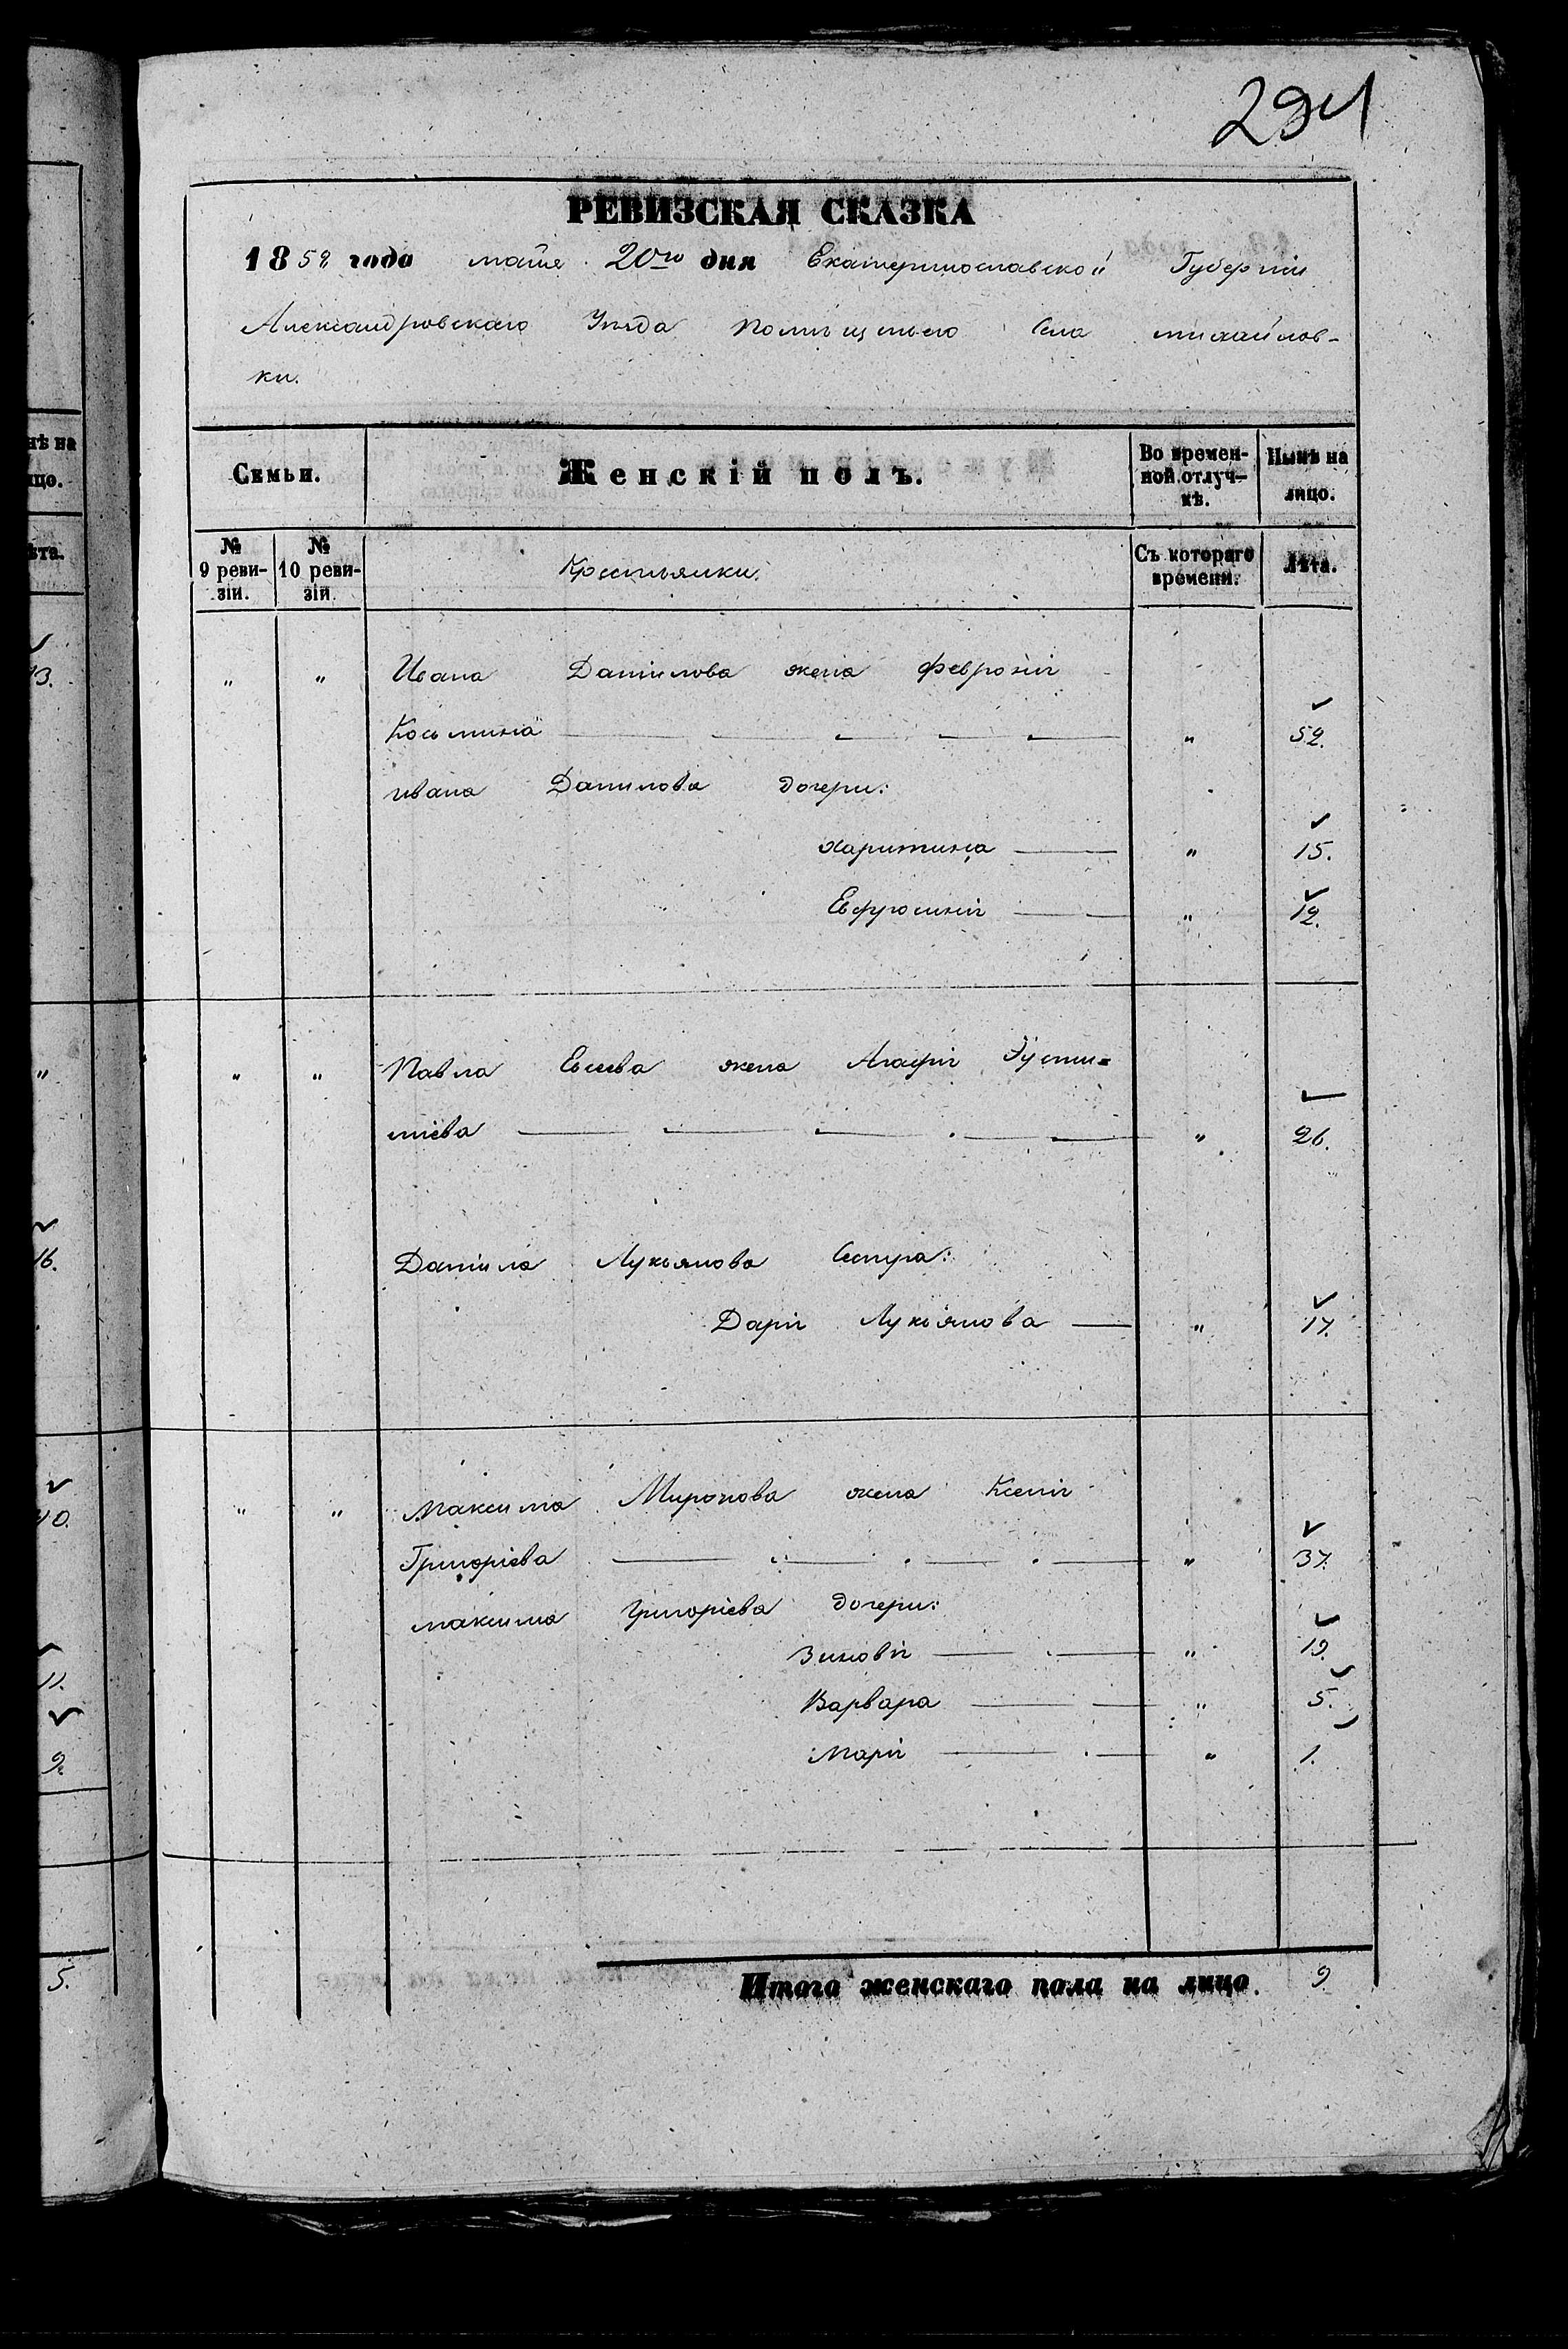 294
РЕВИЗСКАЯ СКАЗКА
1858 года маія 20го дня Екатеринославской Губерніи
Александровскаго Уѣзда Помѣщичьего Села михайлов-
ки.
Семьи. Женскій полъ. Во времен-ной отлуч-кѣ. Нынѣ на лицо.
№ 9 реви-зіи. № 10 реви-зіи. Крестьянки. Съ котораго времени. Лѣта.
" " Ивана Данилова жена Февронія
Косьмина " 52.
ивана Данилова дочери:
Харитина " 15.
Евфросинія " 12.
" " Павла Евсеева жена Агафія Әусти-
ніева " 26.
Данила Лукьянова Сестра:
Дарія Лукьянова " 17.
" " Максима Миронова жена Ксенія
Григоріева " 37.
максима Григоріева дочери:
Зиновія " 19.
Варвара " 5.
Марія " 1.
Итого женскаго пола на лицо. 9.
нѣ на
ицо.
ѣта.
13.
"
16.
40.
11.
9.
5.